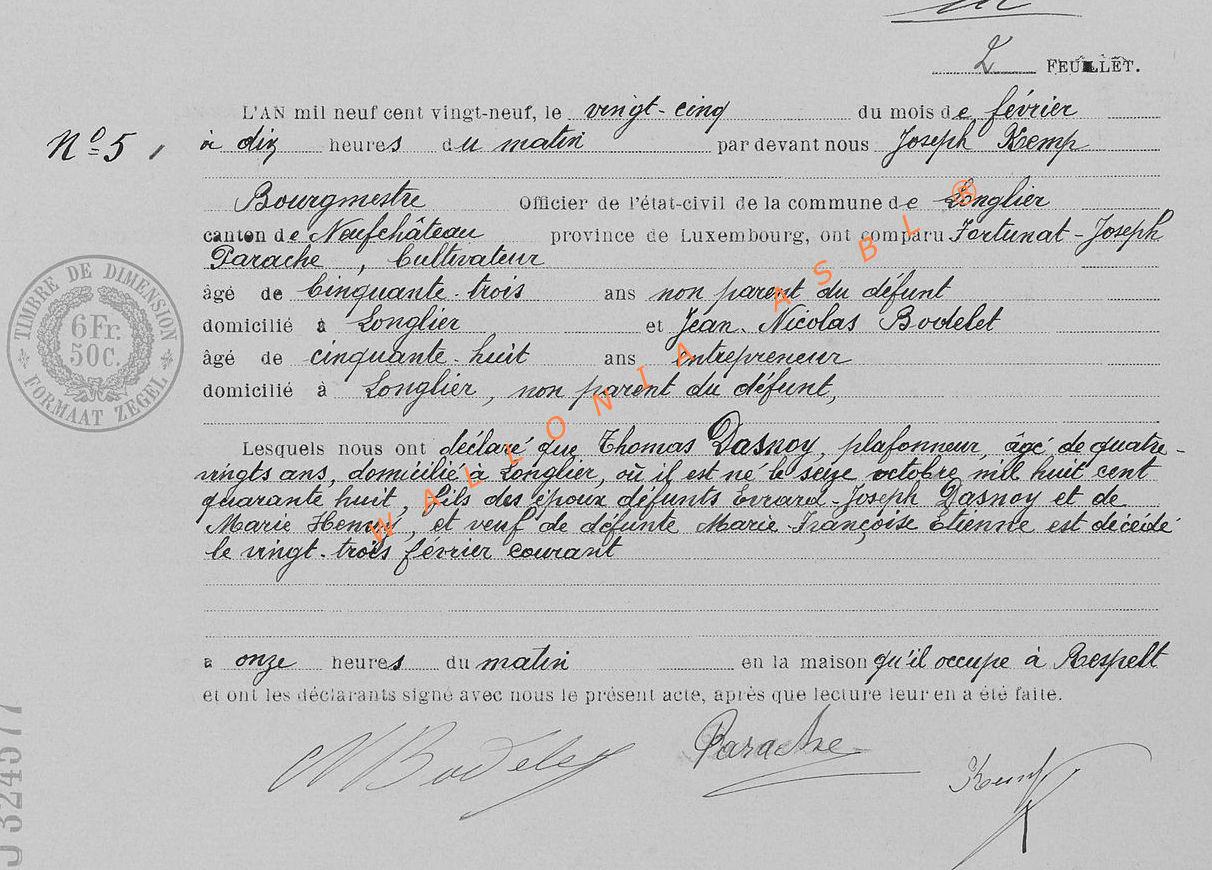 2 FEUILLET.
L'AN mil neuf cent vingt-neuf, le vingt-cinq du mois de février
Nº 5, à dix heures du matin par devant nous Joseph Kemp
Bourgmestre Officier de l'état-civil de la commune de Longlier
canton de Neufchâteau province de Luxembourg, ont comparu Fortunat-Joseph
Parache, Cultivateur
âgé de Cinquante-trois ans non parent du défunt
domicilié à Longlier et Jean-Nicolas Bodelet
âgé de cinquante-huit ans entrepreneur
domicilié à Longlier, non parent du défunt,
Lesquels nous ont déclaré que Thomas Dasnoy, plafonneur, âgé de quatre-
vingts ans, domicilié à Longlier, où il est né le seize octobre mil huit cent
quarante huit, fils des époux défunts Evrard-Joseph Dasnoy et de
Marie Henry, et veuf de défunte Marie-Françoise Etienne est décédé
le vingt-trois février courant
à onze heures du matin en la maison qu'il occupe à Respelt
et ont les déclarants signé avec nous le présent acte, après que lecture leur en a été faite.
Parache
Kemp
TIMBRE DE DIMENSION
6Fr.
50C.
FORMAAT ZEGEL
WALLONIA ASBL ®